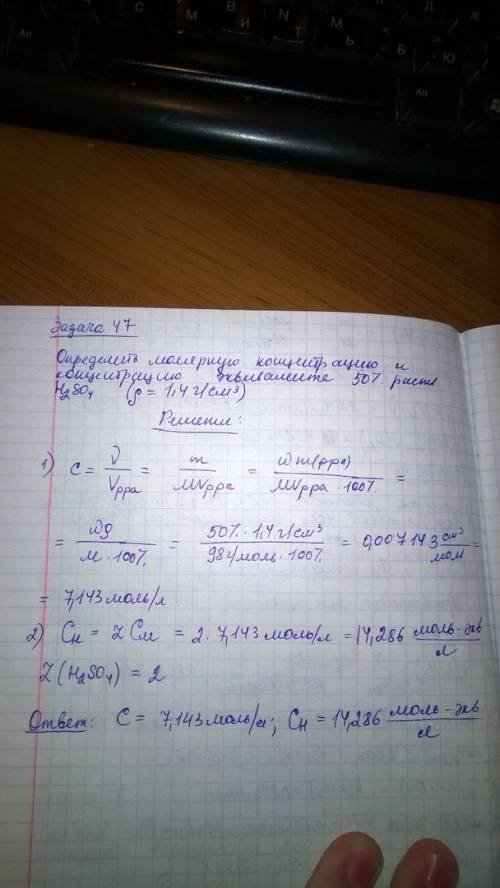 Alt С М В И N Т М Ь < Б > Ю Д Ж Alt
Задача 47
Определить молярную концентрацию и
концентрацию эквивалента 50% раств
H₂SO₄ (ρ = 1,4 г/см³)
Решение:
1) C = ν/Vрра = m/MVрра = ω m(рра)/MVрра · 100% =
= ωρ/M · 100% = 50% · 1,4 г/см³/98 г/моль · 100% = 0,007143 см³/мол =
= 7,143 моль/л
2) Cн = Z Cм = 2 · 7,143 моль/л = 14,286 моль-экв/л
Z(H₂SO₄) = 2
Ответ: C = 7,143 моль/л; Cн = 14,286 моль-экв/л